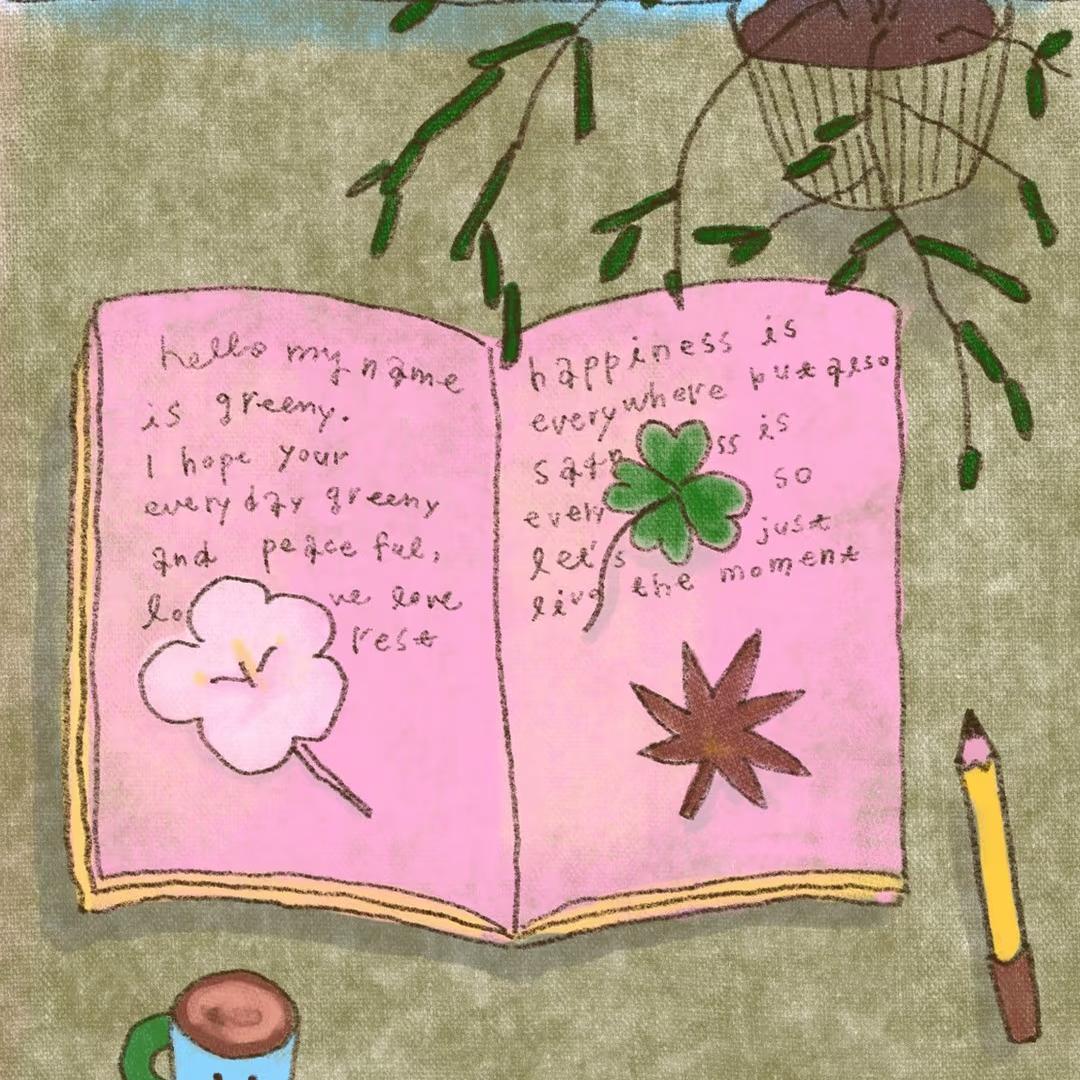 hello my name
is greeny.
I hope your
everyday greeny
and peace ful,
ve love
rest
happiness is
everywhere but also
is
so
let's just
live the moment